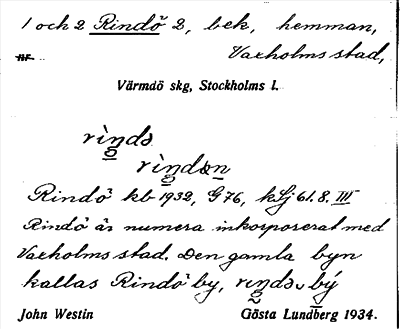 1 och 2 Rindö 2, bek, hemman,
Vaxholms stad,
Värmdö skg, Stockholms l.
rìndə
rìndən
Rindö kb 1932, G 76, kSj 61. 8. III
Rindö är numera inkorporerat med
Vaxholms stad. Den gamla byn
kallas Rindö by, rındə bý
John Westin Gösta Lundberg 1934.